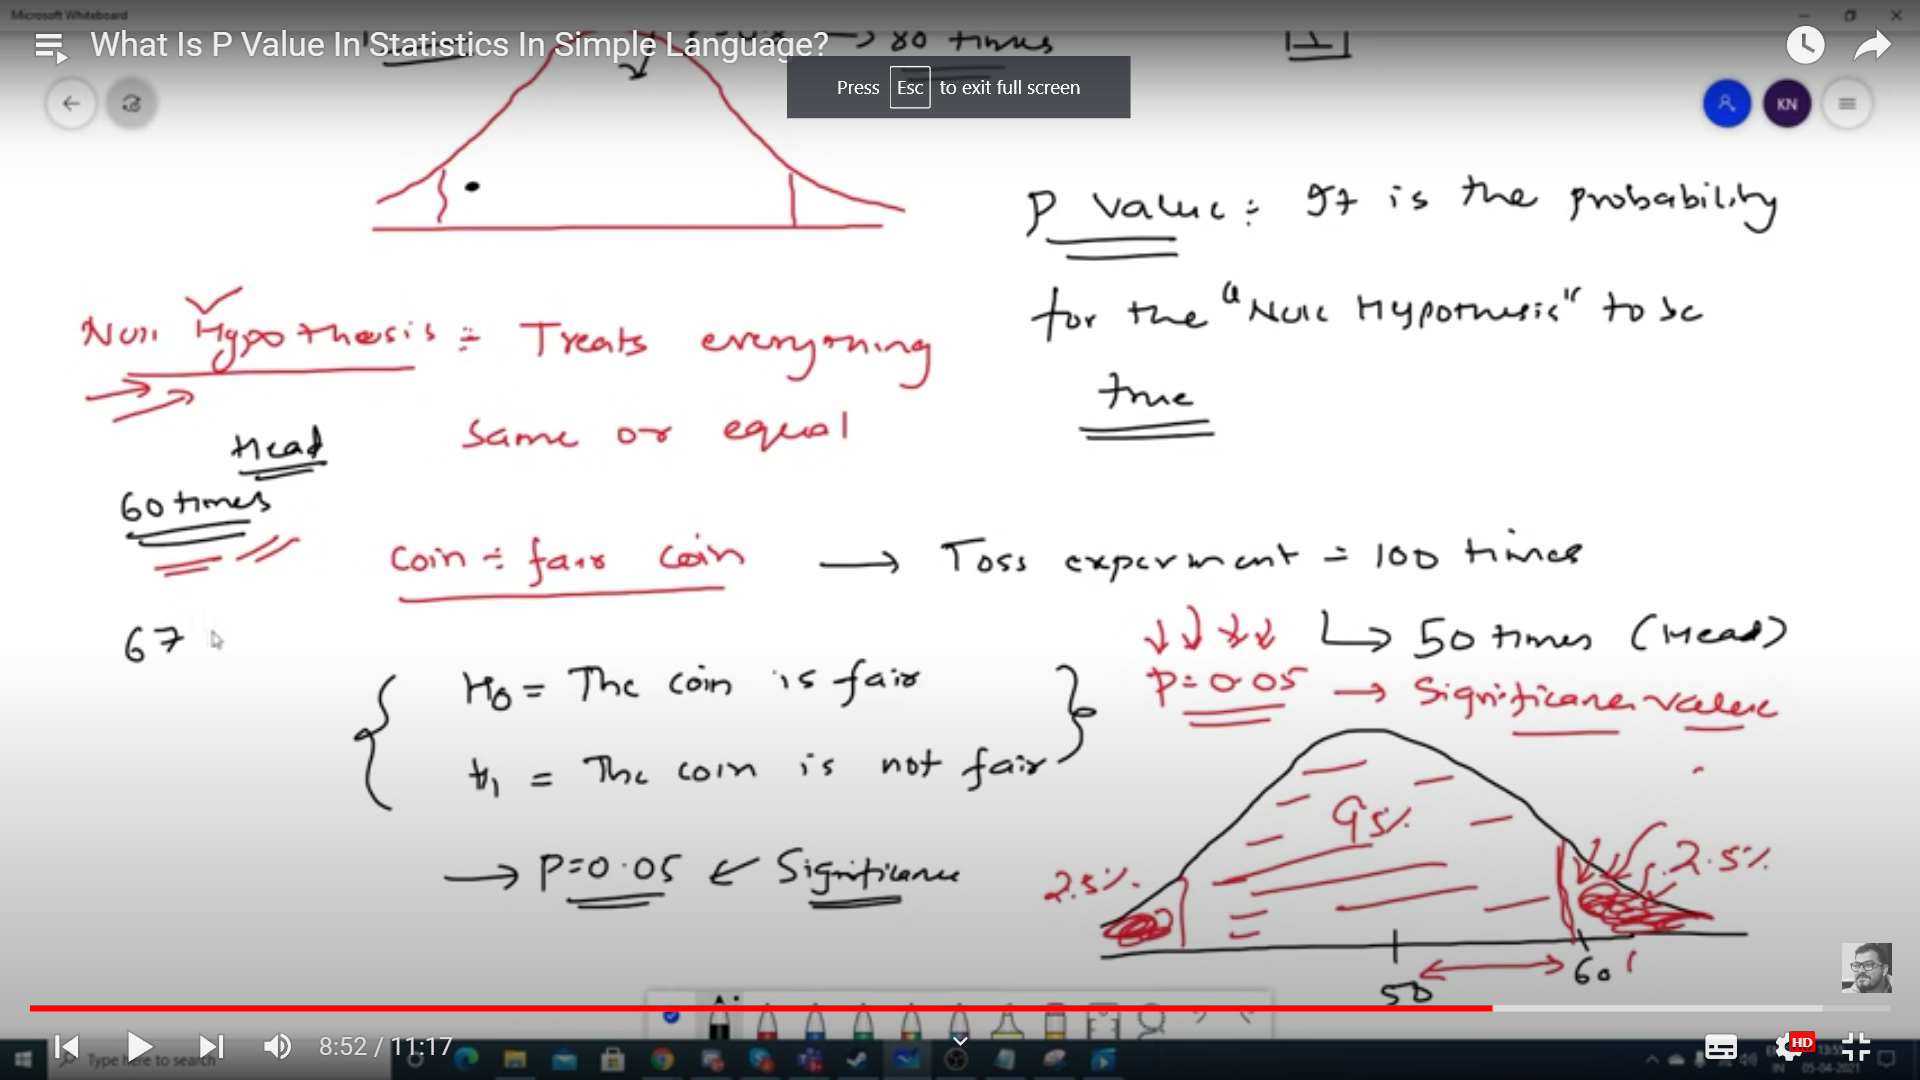 Microsoft Whiteboard
What Is P Value In Statistics In Simple Language?
→ 80 times
Press Esc to exit full screen
KN
P Value : It is the probability
for the "Null Hypothesis" to be
true
Null Hypothesis : Treats everything
same or equal
Head
60 times
Coin : fair coin → Toss experiment = 100 times
67
↳ 50 times (Head)
P=0.05 → Significance value
H0 = The coin is fair
H1 = The coin is not fair
→ P=0.05 ← Significance
95%
2.5%
2.5%
50
60
8:52 / 11:17
HD
Type here to search
IN
05-04-2021